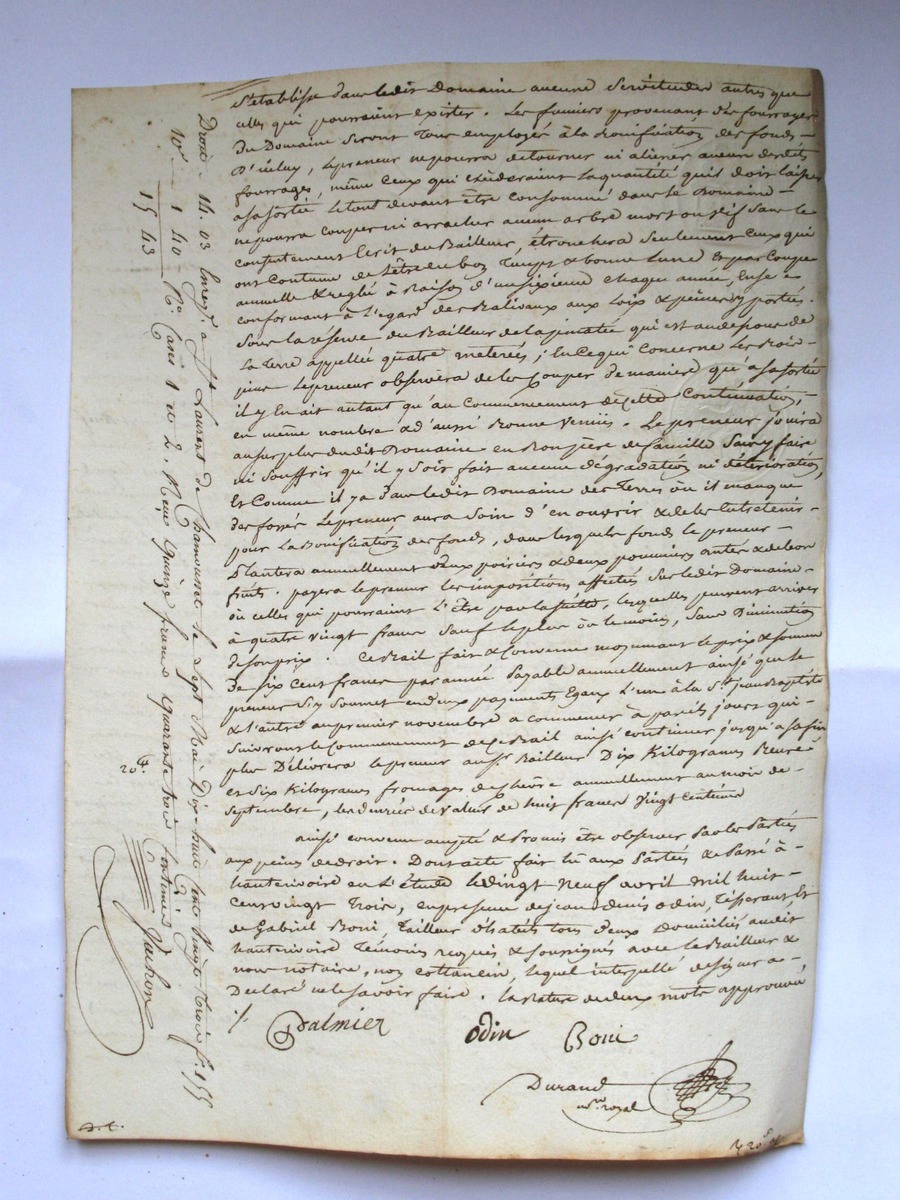 S'établisse dans ledit Domaine aucune Servitudes autres que
celles qui pourraient exister. Les fumiers provenant des fourrages
du Domaine Seront tous employés à la bonification des fonds
D'iceluy, le preneur ne pourra detourner ni aliener aucun desdits
fourrages, même ceux qui excederaient la quantité qu'il doit laisser
a sa sortie le tout devant être consommé dans le Domaine
ne pourra couper ni arracher aucun arbre mort ou vif Sans le
consentement Ecrit du Bailleur, étronchera Seulement Ceux qui
ont Coutume de l'être en bon Temps & bonne Lune Et par Coupe
annuelle & reglée à Raison d'un Sixieme chaque année, En se
conformant à l'egard des Balivaux aux Loix & peines y portées.
Sous la réserve du Bailleur de la qui est au depous de
la Terre appellée quatre ; En Ce qui Concerne Les
le preneur observera de les Couper de maniere qu'à sa sortie
il y En ait autant qu'au Commencement de Cette Continuation,
en même nombre & d'aussi Bonne Venue. Le preneur jouira
au surplus dudit Domaine en Bon père de famille Sans y faire
ni Souffrir qu'il y Soit fait aucune dégradation ni déterioration,
Et Comme il y a dans ledit Domaine des Terres où il manque
des fossés Le preneur aura Soin d'en ouvrir & de les Entretenir
pour La Bonification des fonds, dans lesquels fonds le preneur
Plantera annuellement deux poiriers & deux pommiers antés & de bon
fruits. payera le preneur les impositions affectés Sur ledit Domaine
ou celles qui pourraient L'être par la Suitte, lesquelles peuvent arriver
à quatre vingt francs Sauf le plus ou le moins, Sans Diminution
de Son prix. Ce Bail fait & Convenu moyennant le prix & Somme
De Six Cent francs par année Payable annuellement ainsi que le
preneur S'y Soumet en deux payements Egaux L'un à la St jean Baptiste
& l'autre au premier novembre a commencer à pareils jours qui
Suivront le Commencement de Ce Bail ainsi Continuer jusqu'à sa fin
plus Délivrera le preneur au Sr Bailleur Dix Kilogrames Beurre
et Six Kilogrames fromages de chèvre annuellement au mois de
Septembre, les denrées de valeur de huit francs Vingt Centimes
ainsi convenu accepté & Promis être observer Par les Parties
aux peines de droit. Dont acte fait lû aux Parties & Passé à
hauterivoire en L'étude le vingt neuf avril mil huit
cent vingt Trois, en presence de jean denis odin, Tisserant, Et
de Gabriel Boni, Tailleur d'habits tous deux Domiciliés audit
hauterivoire Témoins requis & Soussignés avec le Bailleur &
nous notaire, non Cottancin, lequel interpellé de Signer a
Declaré ne le Savoir faire. la rature de deux mots approuvé
./.
Palmier Odin Boni
Durand
nre royal
Droit 14. 03 Enregé a St Laurent de Chamousset le Sept Mai Dix-huit Cent Vingt Trois fo. 155
10e 1 40 Ro. Cases 1 et 2. Reçu Quinze francs Quarante trois Centimes
15 43
Jachon